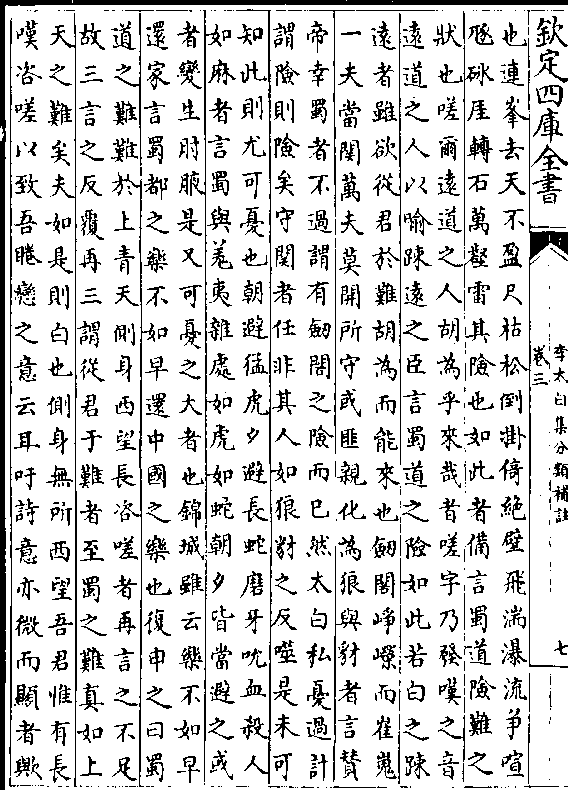 欽定四庫全書
李太白集分類補註
卷三
七
也連峯去天不盈尺枯松倒掛倚絶壁飛湍瀑流爭喧
豗砅厓轉石萬壑雷其險也如此者備言蜀道險難之
狀也嗟爾遠道之人胡為乎來哉者嗟字乃發嘆之音
遠道之人以喻踈遠之臣言蜀道之險如此若白之踈
遠者雖欲從君於難胡為而能來也劒閣崢嶸而崔嵬
一夫當關萬夫莫開所守或匪親化為狼與豺者言賛
帝幸蜀者不過謂有劒閣之險而已然太白私憂過計
謂險則險矣守關者任非其人如狼豺之反噬是未可
知此則尤可憂也朝避猛虎夕避長蛇磨牙吮血殺人
如麻者言蜀與羌夷雜處如虎如蛇朝夕皆當避之或
者變生肘腋是又可憂之大者也錦城雖云樂不如早
還家言蜀都之樂不如早還中國之樂也復申之曰蜀
道之難難於上青天側身西望長咨嗟者再言之不足
故三言之反覆再三謂從君于難者至蜀之難真如上
天之難矣夫如是則白也側身無所西望吾君惟有長
嘆咨嗟以致吾睠戀之意云耳吁詩意亦微而顯者歟